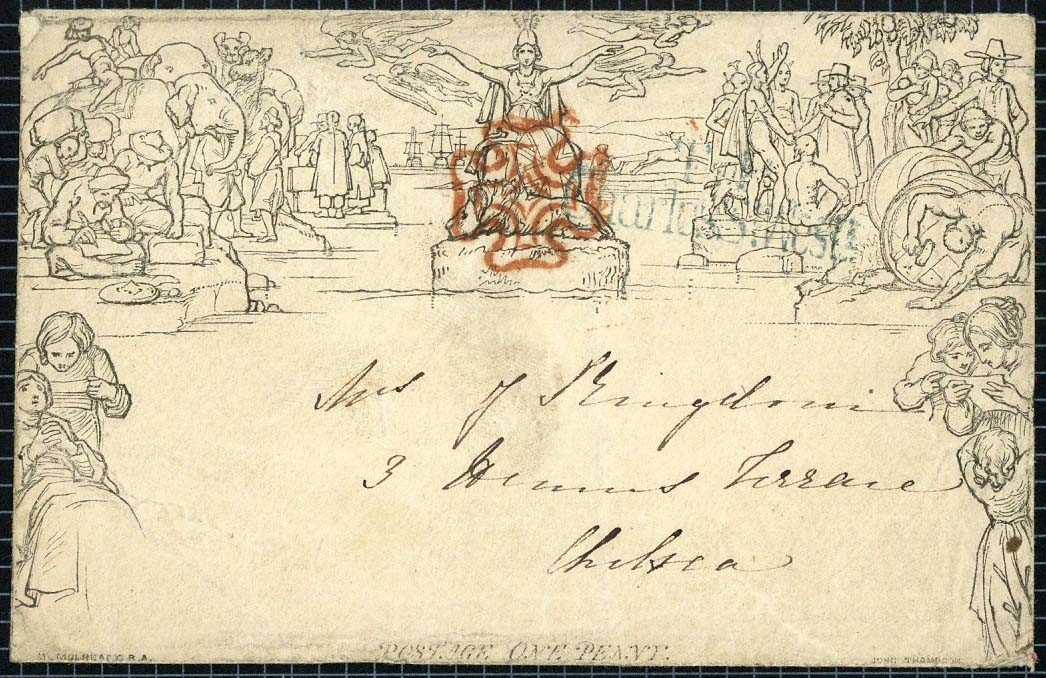 T.P
Charles St West
Mrs J Kingdom
3 Terrace
Chelsea
POSTAGE ONE PENNY.
W. MULREADY. R.A.
JOHN THOMPSON